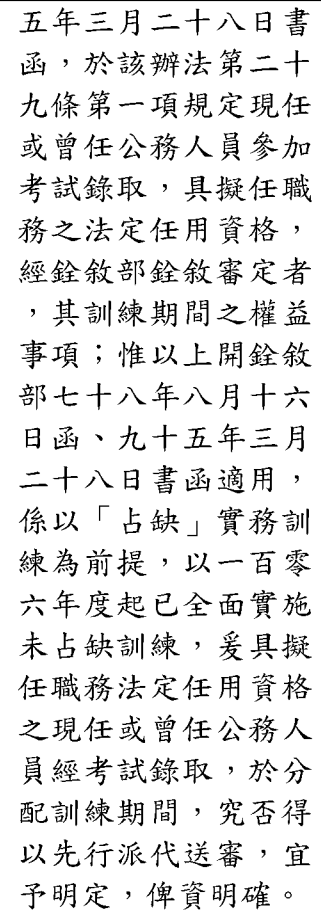 五年三月二十八日書
函，於該辦法第二十
九條第一項規定現任
或曾任公務人員參加
考試錄取，具擬任職
務之法定任用資格，
經銓敘部銓敘審定者
，其訓練期間之權益
事項；惟以上開銓敘
部七十八年八月十六
日函、九十五年三月
二十八日書函適用，
係以「占缺」實務訓
練為前提，以一百零
六年度起已全面實施
未占缺訓練，爰具擬
任職務法定任用資格
之現任或曾任公務人
員經考試錄取，於分
配訓練期間，究否得
以先行派代送審，宜
予明定，俾資明確。